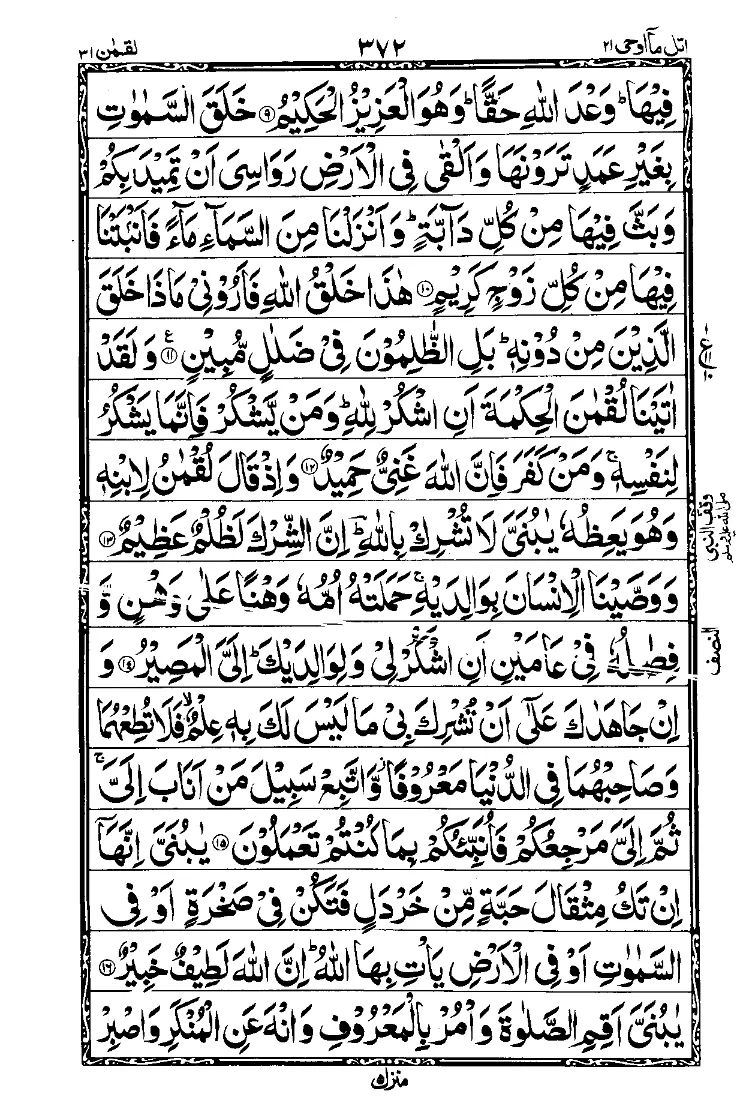 اتل مآ اوحی ۲۱ ۳۷۲ لقمٰن ۳۱
فِيْهَا ؕ وَعْدَ اللّٰهِ حَقًّا ؕ وَهُوَ الْعَزِيْزُ الْحَكِيْمُ ۹ خَلَقَ السَّمٰوٰتِ
بِغَيْرِ عَمَدٍ تَرَوْنَهَا وَاَلْقٰى فِى الْاَرْضِ رَوَاسِىَ اَنْ تَمِيْدَ بِكُمْ
وَبَثَّ فِيْهَا مِنْ كُلِّ دَآبَّةٍ ؕ وَاَنْزَلْنَا مِنَ السَّمَآءِ مَآءً فَاَنْۢبَتْنَا
فِيْهَا مِنْ كُلِّ زَوْجٍ كَرِيْمٍ ۱۰ هٰذَا خَلْقُ اللّٰهِ فَاَرُوْنِىْ مَاذَا خَلَقَ
الَّذِيْنَ مِنْ دُوْنِهٖ ؕ بَلِ الظّٰلِمُوْنَ فِىْ ضَلٰلٍ مُّبِيْنٍ ۱۱ ع وَلَقَدْ
اٰتَيْنَا لُقْمٰنَ الْحِكْمَةَ اَنِ اشْكُرْ لِلّٰهِ ؕ وَمَنْ يَّشْكُرْ فَاِنَّمَا يَشْكُرُ
لِنَفْسِهٖ ۚ وَمَنْ كَفَرَ فَاِنَّ اللّٰهَ غَنِىٌّ حَمِيْدٌ ۱۲ وَاِذْ قَالَ لُقْمٰنُ لِابْنِهٖ
وَهُوَ يَعِظُهٗ يٰبُنَىَّ لَا تُشْرِكْ بِاللّٰهِ ؕ اِنَّ الشِّرْكَ لَظُلْمٌ عَظِيْمٌ ۱۳
وَوَصَّيْنَا الْاِنْسَانَ بِوَالِدَيْهِ ۚ حَمَلَتْهُ اُمُّهٗ وَهْنًا عَلٰى وَهْنٍ وَّ
فِصٰلُهٗ فِىْ عَامَيْنِ اَنِ اشْكُرْ لِىْ وَلِوَالِدَيْكَ ؕ اِلَىَّ الْمَصِيْرُ ۱۴ وَ
اِنْ جَاهَدٰكَ عَلٰٓى اَنْ تُشْرِكَ بِىْ مَا لَيْسَ لَكَ بِهٖ عِلْمٌ ۙ فَلَا تُطِعْهُمَا
وَصَاحِبْهُمَا فِى الدُّنْيَا مَعْرُوْفًا ؗ وَّاتَّبِعْ سَبِيْلَ مَنْ اَنَابَ اِلَىَّ ۚ
ثُمَّ اِلَىَّ مَرْجِعُكُمْ فَاُنَبِّئُكُمْ بِمَا كُنْتُمْ تَعْمَلُوْنَ ۱۵ يٰبُنَىَّ اِنَّهَآ
اِنْ تَكُ مِثْقَالَ حَبَّةٍ مِّنْ خَرْدَلٍ فَتَكُنْ فِىْ صَخْرَةٍ اَوْ فِى
السَّمٰوٰتِ اَوْ فِى الْاَرْضِ يَاْتِ بِهَا اللّٰهُ ؕ اِنَّ اللّٰهَ لَطِيْفٌ خَبِيْرٌ ۱۶
يٰبُنَىَّ اَقِمِ الصَّلٰوةَ وَاْمُرْ بِالْمَعْرُوْفِ وَانْهَ عَنِ الْمُنْكَرِ وَاصْبِرْ
وقف النبی
صلی الله علیه وسلم
النصف
منزل ۵